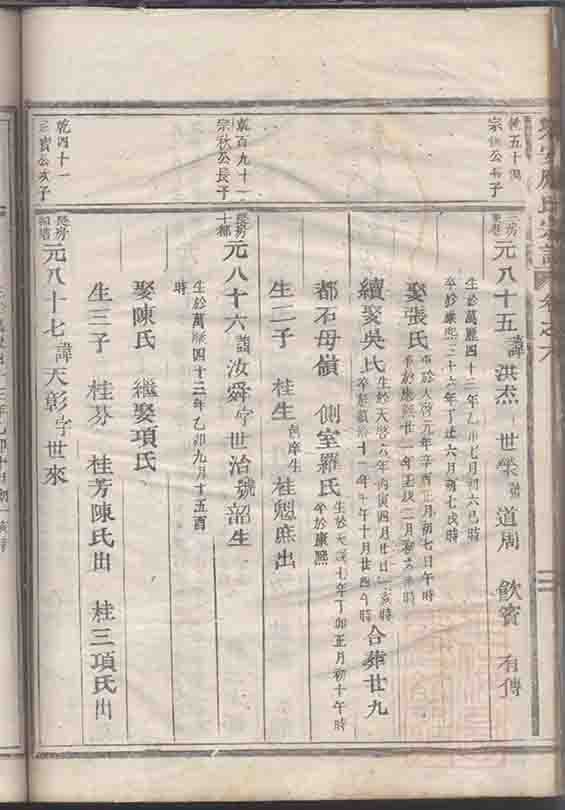 氏宗譜
卷之六
五十
宗 公 子
三房
元八十五諱洪烋 世榮號道周 飲賓 有傳
生於萬曆四十三年乙卯七月初六巳時
卒於康熙三十六年丁丑六月初七戌時
娶張氏 生於天啓元年辛酉正月初七日午時
卒於康熙廿一年壬戌二月初六 時
續娶吳氏 生於天啓六年丙寅四月廿日 亥時
卒 十 年 午十月廿四午時
合葬廿九
都石母嶺 側室羅氏 生於天啓七年丁卯正月初十午時
卒於康熙
生二子 桂生 桂魁庶出
乾百九十一
宗秋公長子
長房
十都
元八十六諱汝舜字世治號韶生
生於萬曆四十三年乙卯九月十五酉
時
娶陳氏 繼娶項氏
生三子 桂芬 桂芳陳氏出 桂三項氏出
乾四十一
三賓公次子
長房
元八十七諱天彰字世來